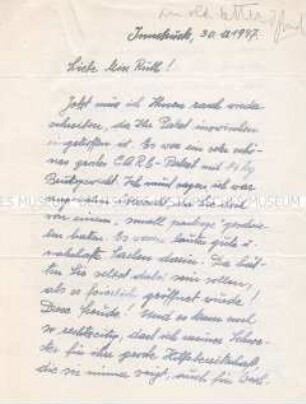 Innsbruck, 30. 1947.
Liebe Miss Ruth!
Jetzt muss ich Ihnen rasch wieder
schreiben, da Ihr Paket inzwischen
eingetroffen ist. Es war ein sehr schö-
nes großes C.A.R.E.-Paket mit kg
Bruttogewicht. Ich muß sagen, ich war
Sie
von einem "small package" geschrie-
ben hatten. Es waren lauter gute u.
nahrhafte Sachen darin. Da hät-
ten Sie selbst dabei sein sollen,
als es feierlich geöffnet wurde!
Diese Freude! Und es kam noch
so rechtzeitig, dass ich meiner Schwe-
ster für ihre große Hilfsbereitschaft,
die sie immer zeigt, auch für